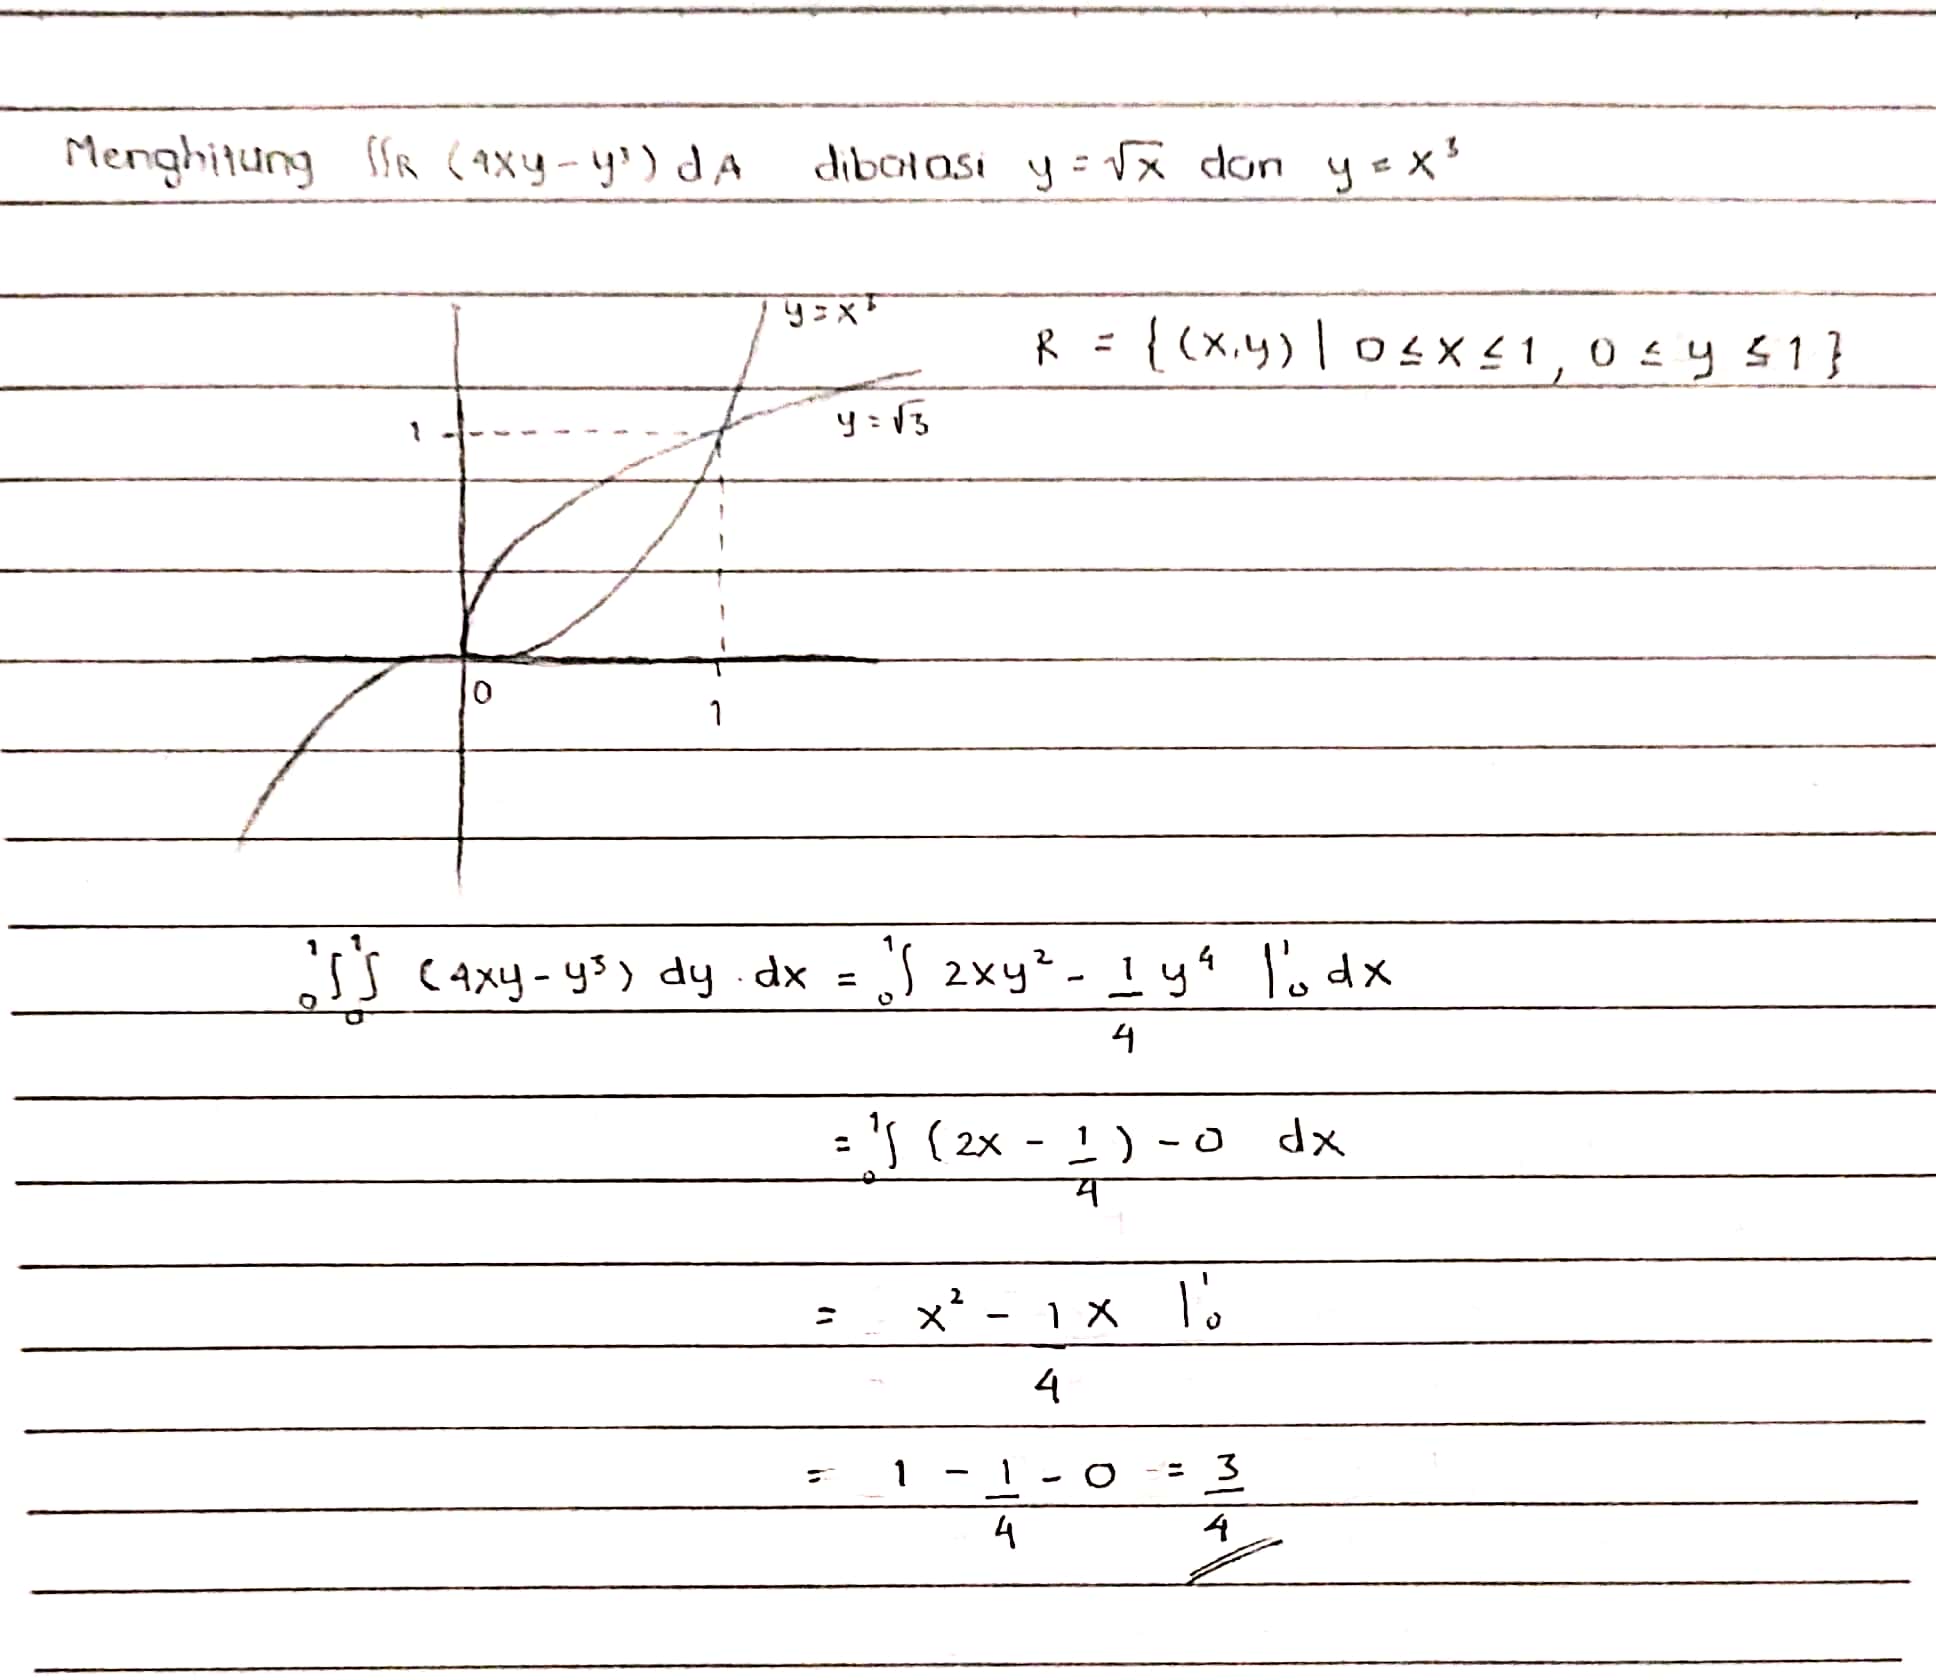 Menghitung ∬R (4xy - y³) dA dibatasi y = √x dan y = x³
y = x³
R = {(x,y) | 0 ≤ x ≤ 1, 0 ≤ y ≤ 1}
1
y = √3
0
1
₀¹∫ ₀¹∫ (4xy - y³) dy . dx = ₀¹∫ 2xy² - 1/4 y⁴ |₀¹ dx
= ₀¹∫ (2x - 1/4) - 0 dx
= x² - 1/4 x |₀¹
= 1 - 1/4 - 0 = 3/4